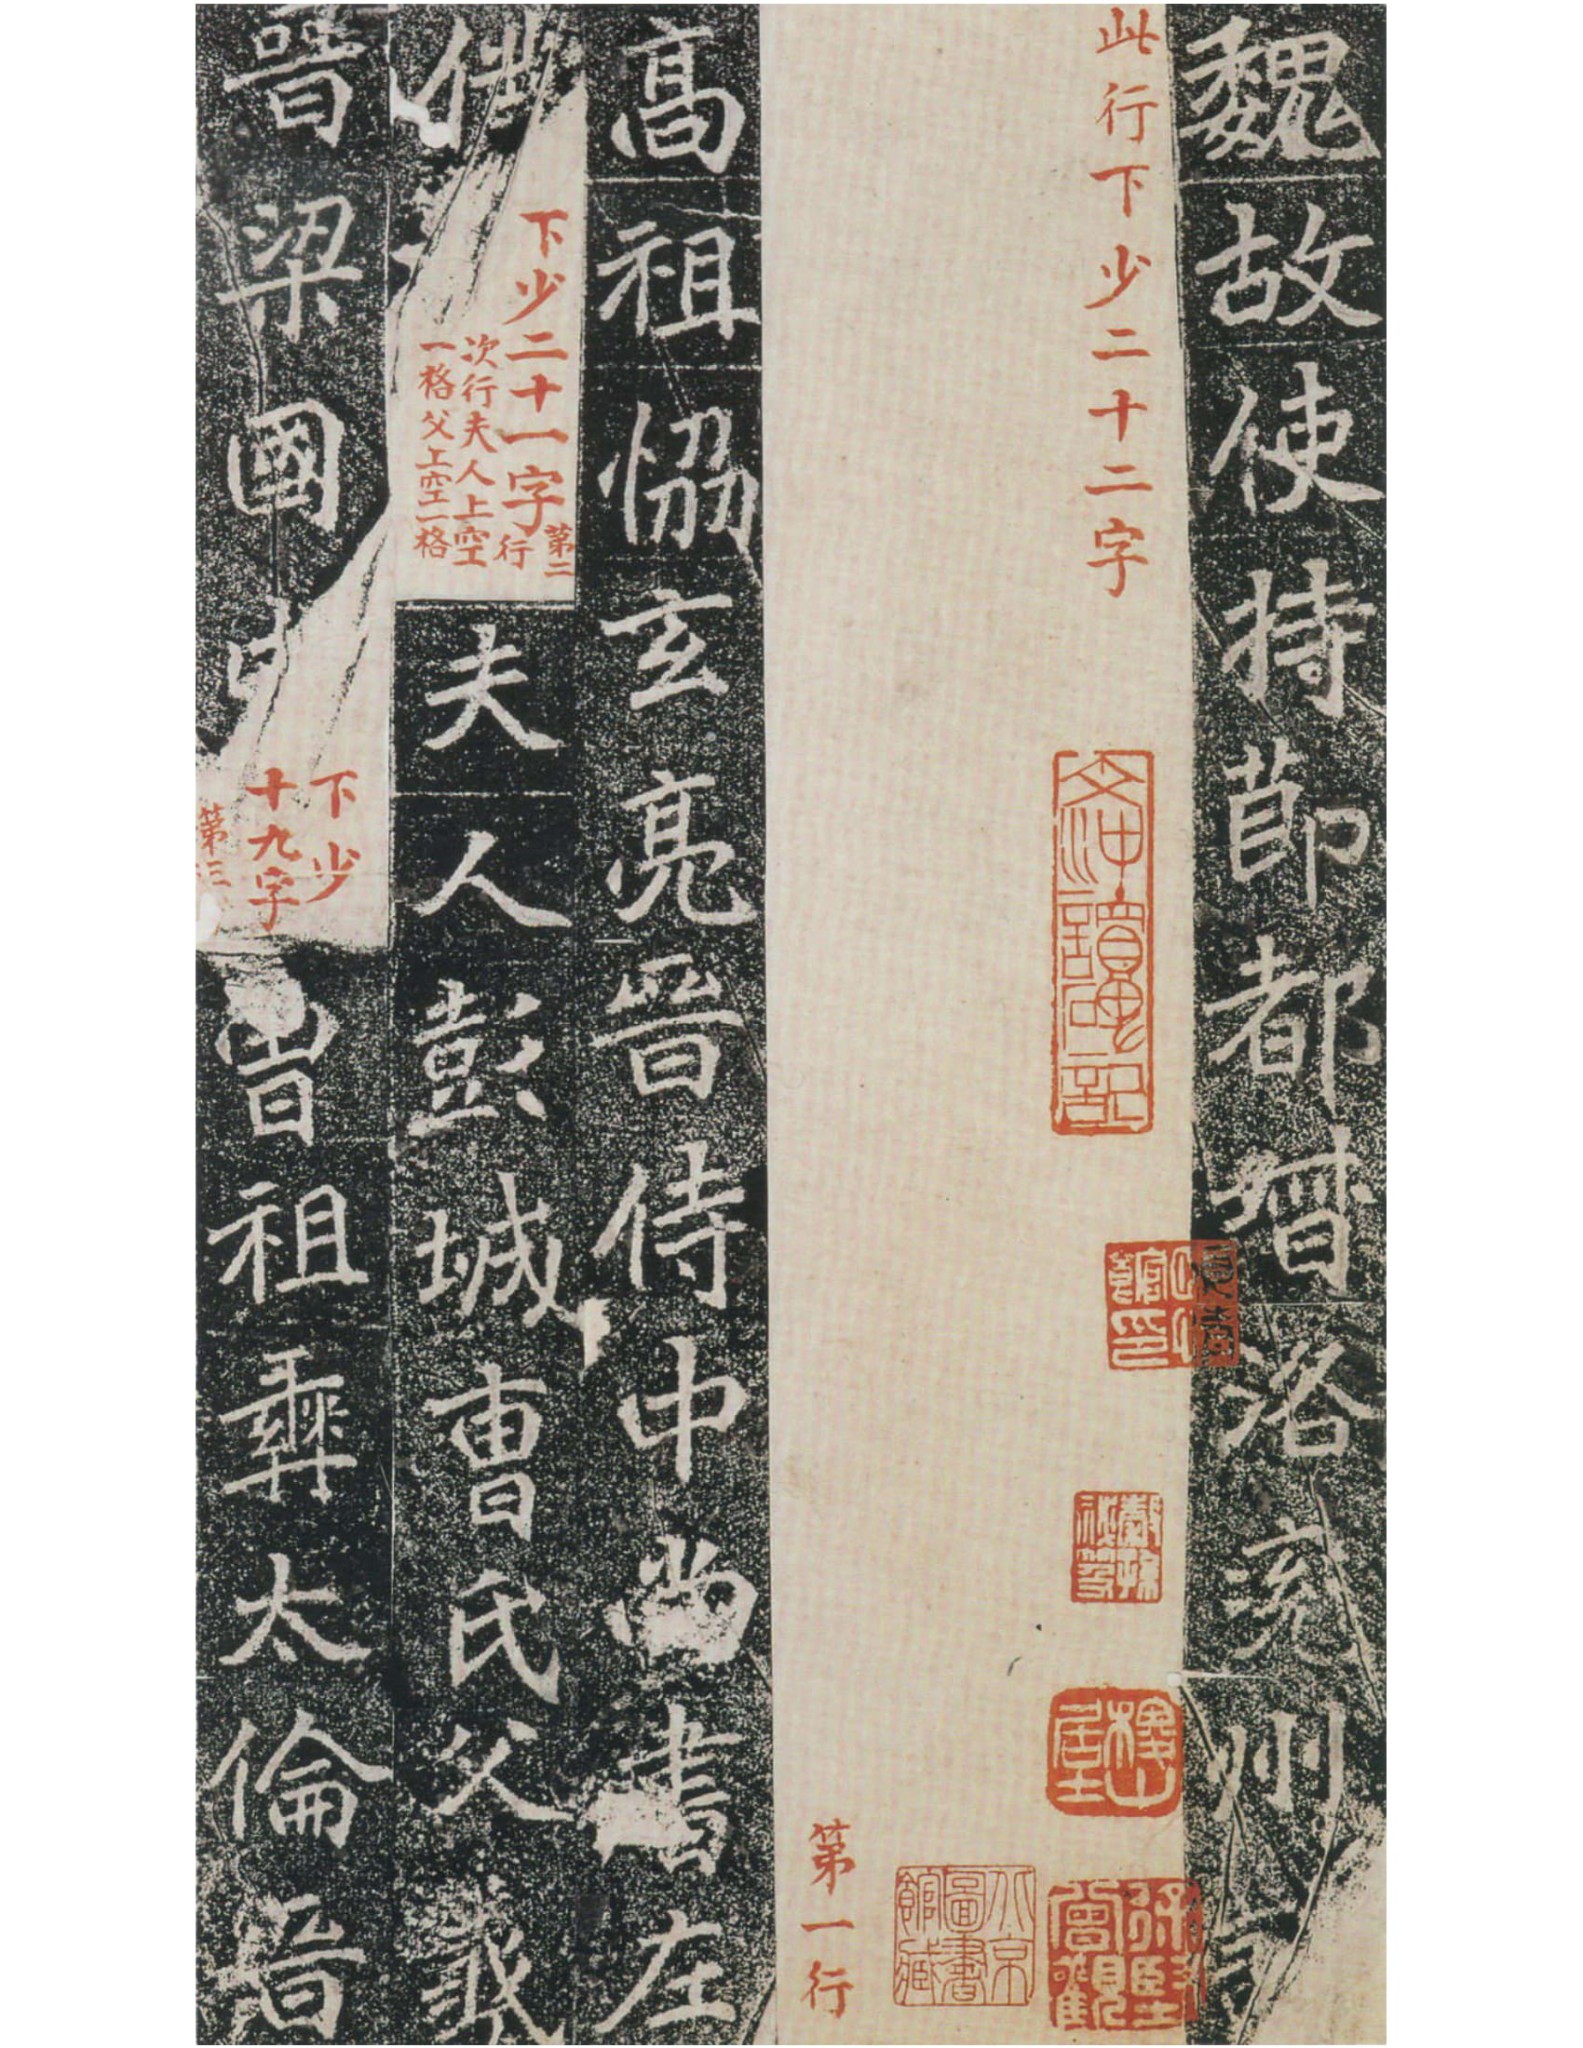 魏故使持節都督洛兖州
此行下少二十二字
第一行
北京圖書館藏
高祖恊玄亮晉侍中尚書左
僕
下少二十一字
第二行
次行夫人上空
一格父上空一格
夫人彭城曹氏父義
晉梁國中
下少
十九字
第三
曾祖彝太倫晉